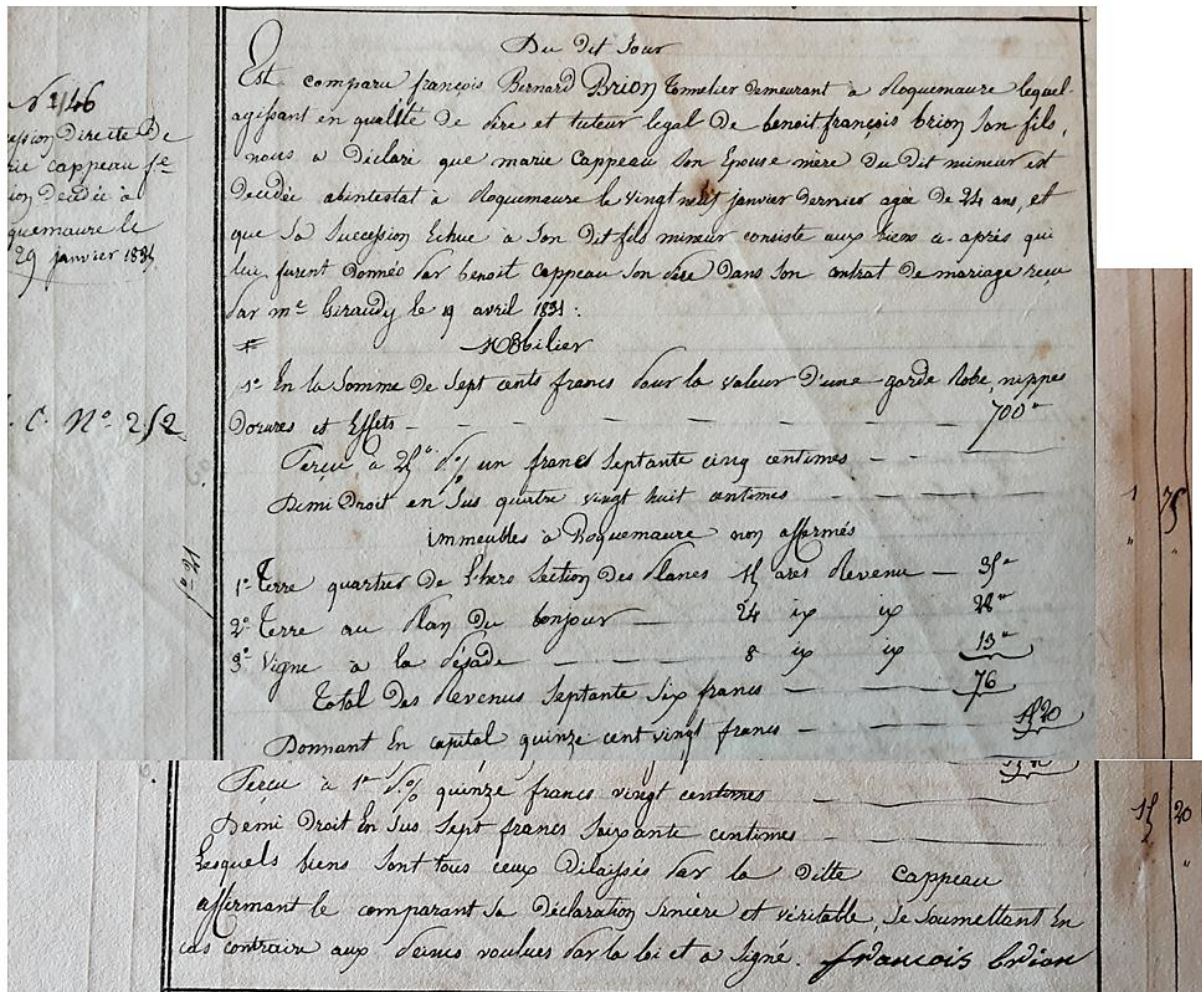 Du dit Jour
N° 1/46
ession Directe De
rie cappeau fe
ion decedée à
quemaure le
29 janvier 1835
Est comparu françois Bernard Brion Tonnelier demeurant à Roquemaure lequel
agissant en qualité de Père et tuteur legal de benoit françois brion Son fils,
nous a déclaré que marie Cappeau Son Epouse mère Du Dit mineur est
Decedée abintestat à Roquemaure le vingt neuf janvier Dernier agée de 24 ans, et
que Sa Succession Echue à Son Dit fils mineur consiste aux biens ci-après qui
lui furent Donnés Par benoit Cappeau Son Père Dans Son contrat de mariage reçu
Par me Giraudy le 19 avril 1831 :
Mobilier
1° En la Somme De Sept cents francs Pour la valeur D'une garde Robe, nippes
Dorures et Effets - - - - - - 700"
. C. N° 252
Perçu à 25c P% un franc Septante cinq centimes - - 1 75
Demi Droit en Sus quatre vingt huit centimes - - - " "
immeubles à Roquemaure non affermés
1° Terre quartier de L'hers Section Des Planes 15 ares Revenu - 35"
2° Terre au Plan Du bonjour - 24 ix ix 28"
3° Vigne à la Pésade - - - 8 ix ix 13"
Total Des Revenus Septante Six francs - - - 76
Donnant En capital quinze cent vingt francs - - - 1520
Perçu à 1" P% quinze francs vingt centimes - - - 15 20
Demi Droit En Sus Sept francs Soixante centimes - - - "
Lesquels biens Sont tous ceux Délaissés Par la Ditte Cappeau
affirmant le comparant Sa Déclaration Sincère et véritable, Se Soumettant En
cas contraire aux Peines voulues Par la loi et a Signé. francois brion